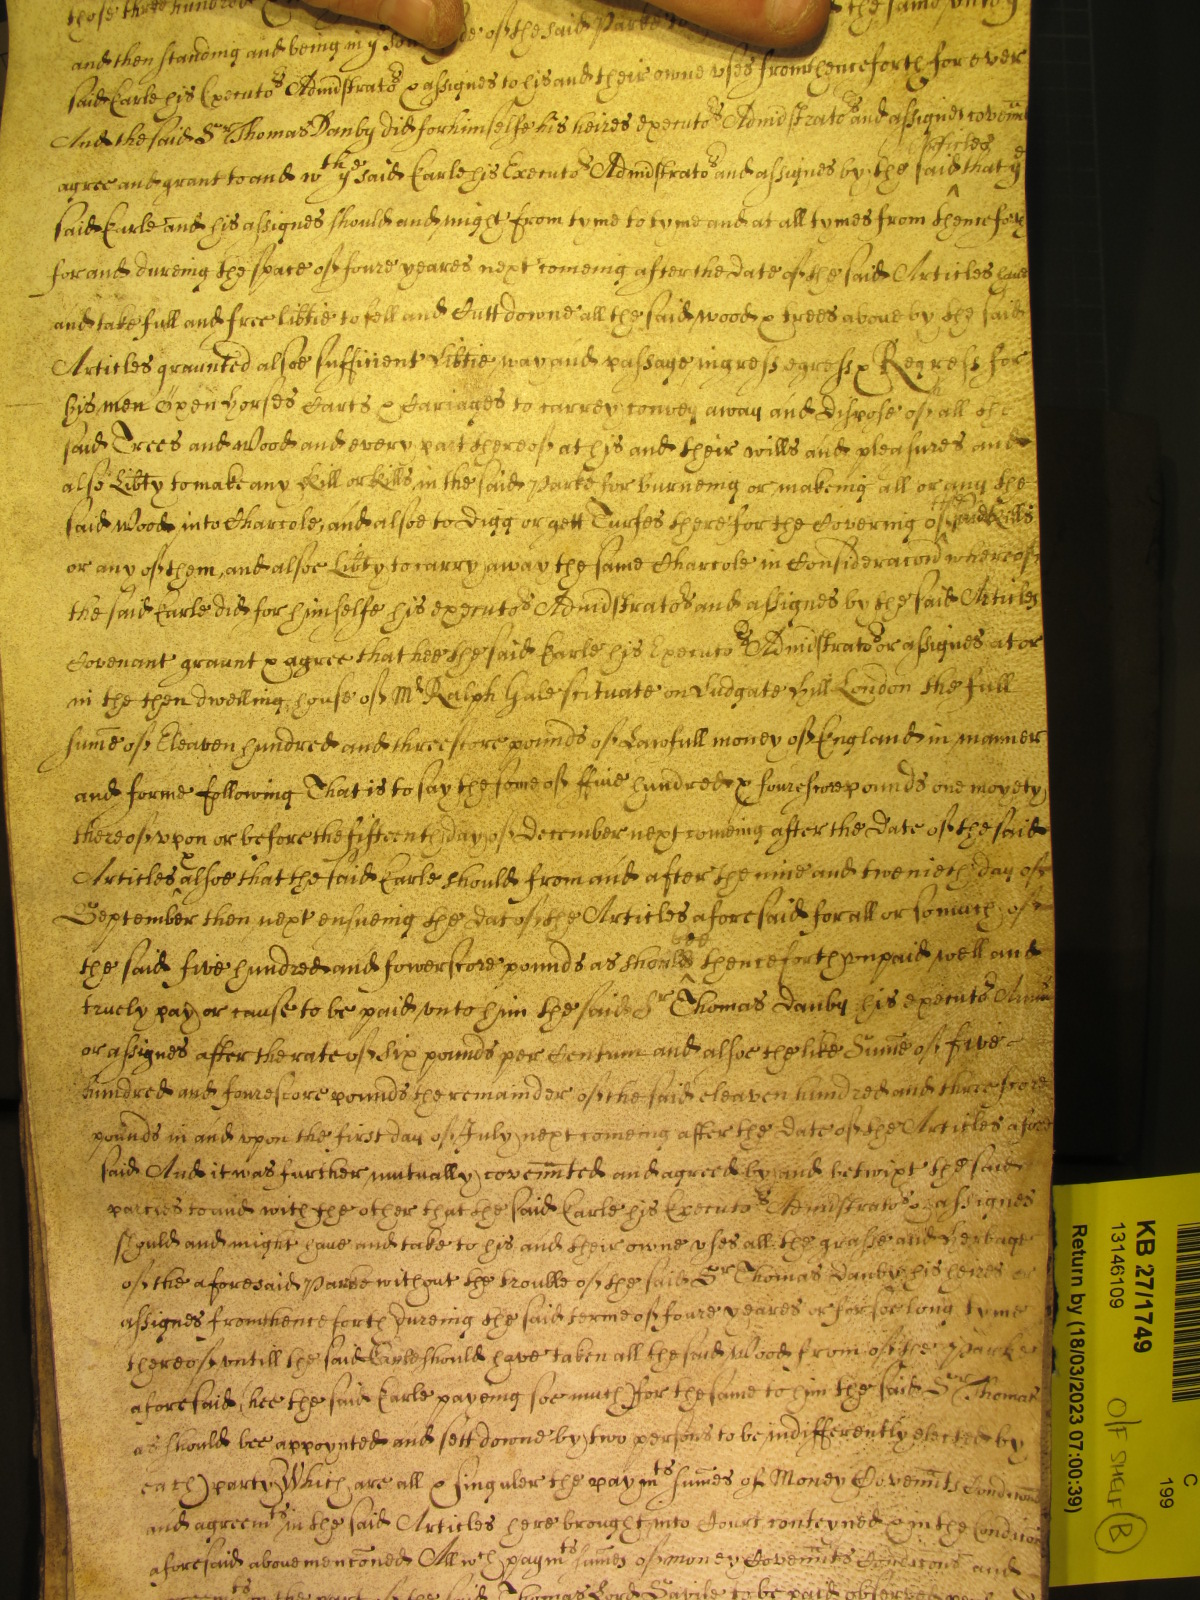 those three hundred
and then standing and being in yᵉ of the said Parke to the same vnto yᵉ
said Earle his Executoʳˢ Admistratoʳˢ & assignes to his and their owne vses from henceforth for ever
And the said Sʳ Thomas Danby did for himselfe his heires executoʳˢ Admistratoʳˢ and assignes coven̄nt
agree and grant to and wᵗʰ the yᵉ said Earle his Executoʳˢ Admistratoʳˢ and assignes by the said Articles that yᵉ
said Earle and his assignes should and might from tyme to tyme and at all tymes from thencefor
for and dureing the space of foure yeares next comeing after the date of the said Articles have
and take full and free lib̄tie to fell and Cutt downe all the said wood & trees above by the said
Articles graunted alsoe sufficient Lib̄tie way and passage ingress egress & Regress for
his men Oxen horses Carts & Cariages to carrey convey away and dispose of all the
said Trees and Wood and every part thereof at his and their wills and pleasures and
also Lib̄ty to make any Kill or Kills in the said Parke for burneing or makeing all or any the
said Wood into Charcole, and alsoe to Digg or gett Turfes there for the Covering of the said Kills
or any of them, and alsoe Lib̄ty to carry away the same Charcole in Consideracōn whereof
the said Earle did for himselfe his executoʳˢ Admistratoʳˢ and assignes by the said Articles
Covenant graunt & agree that hee the said Earle his Executoʳˢ Admistratoʳˢ or assignes at or
in the then dwelling house of Mʳ Ralph Hale scituate on Ludgate Hill London the full
sum̄e of Eleaven hundred and threescore pounds of Lawfull money of England in manner
and forme following That is to say the some of ffive hundred & fourescore pounds one moyety
thereof vpon or before the fifteenth day of December next comeing after the Date of the said
Articles & alsoe that the said Earle should from and after the nine and twenieth day of
September then next ensueing the dat of the Articles aforesaid for all or so much of
the said five hundred and fowerscore pounds as should bee thenceforth vnpaid well and
truely pay or cause to be paid vnto him the said Sʳ Thomas Danby his executoʳˢ
or assignes after the rate of six pounds per Centum and alsoe the like Sum̄e of five
hundred and fourescore pounds the remainder of the said eleaven hundred and threescore
pounds in and vpon the first day of July next comeing after the Date of the Articles afore
said And it was further mutually coven̄nted and agreed by and betwixt the said
parties to and with the other that the said Earle his Executoʳˢ Admistratoʳˢ & assignes
should and might have and take to his and their owne vses all the grasse and herbage
of the aforesaid Parke without the trouble of the said Sʳ Thomas Danby his heires or
assignes from henceforth dureing the said terme of foure yeares or for soe long tyme
thereof vntill the said Earle should have taken all the said Wood from of the Parke
aforesaid, hee the said Earle payeing soe much for the same to him the said Sʳ Thomas
as should bee appoynted and sett downe by two persons to be indifferently elected by
each party Which are all & singuler the paymᵗˢ sum̄es of Money Coven̄nts Condicōns
and agreemᵗˢ in the said Articles here brought into Court conteyned & in the Condicōn
aforesaid above mencōned All wᶜʰ paymᵗˢ sum̄es of money Coven̄nts Condicōns and
on the part of the said Thomas Lord Savile to be paid observed
KB 27/1749
13146109
Return by (18/03/2023 07:00:39)
O/F SHELF B
C
199